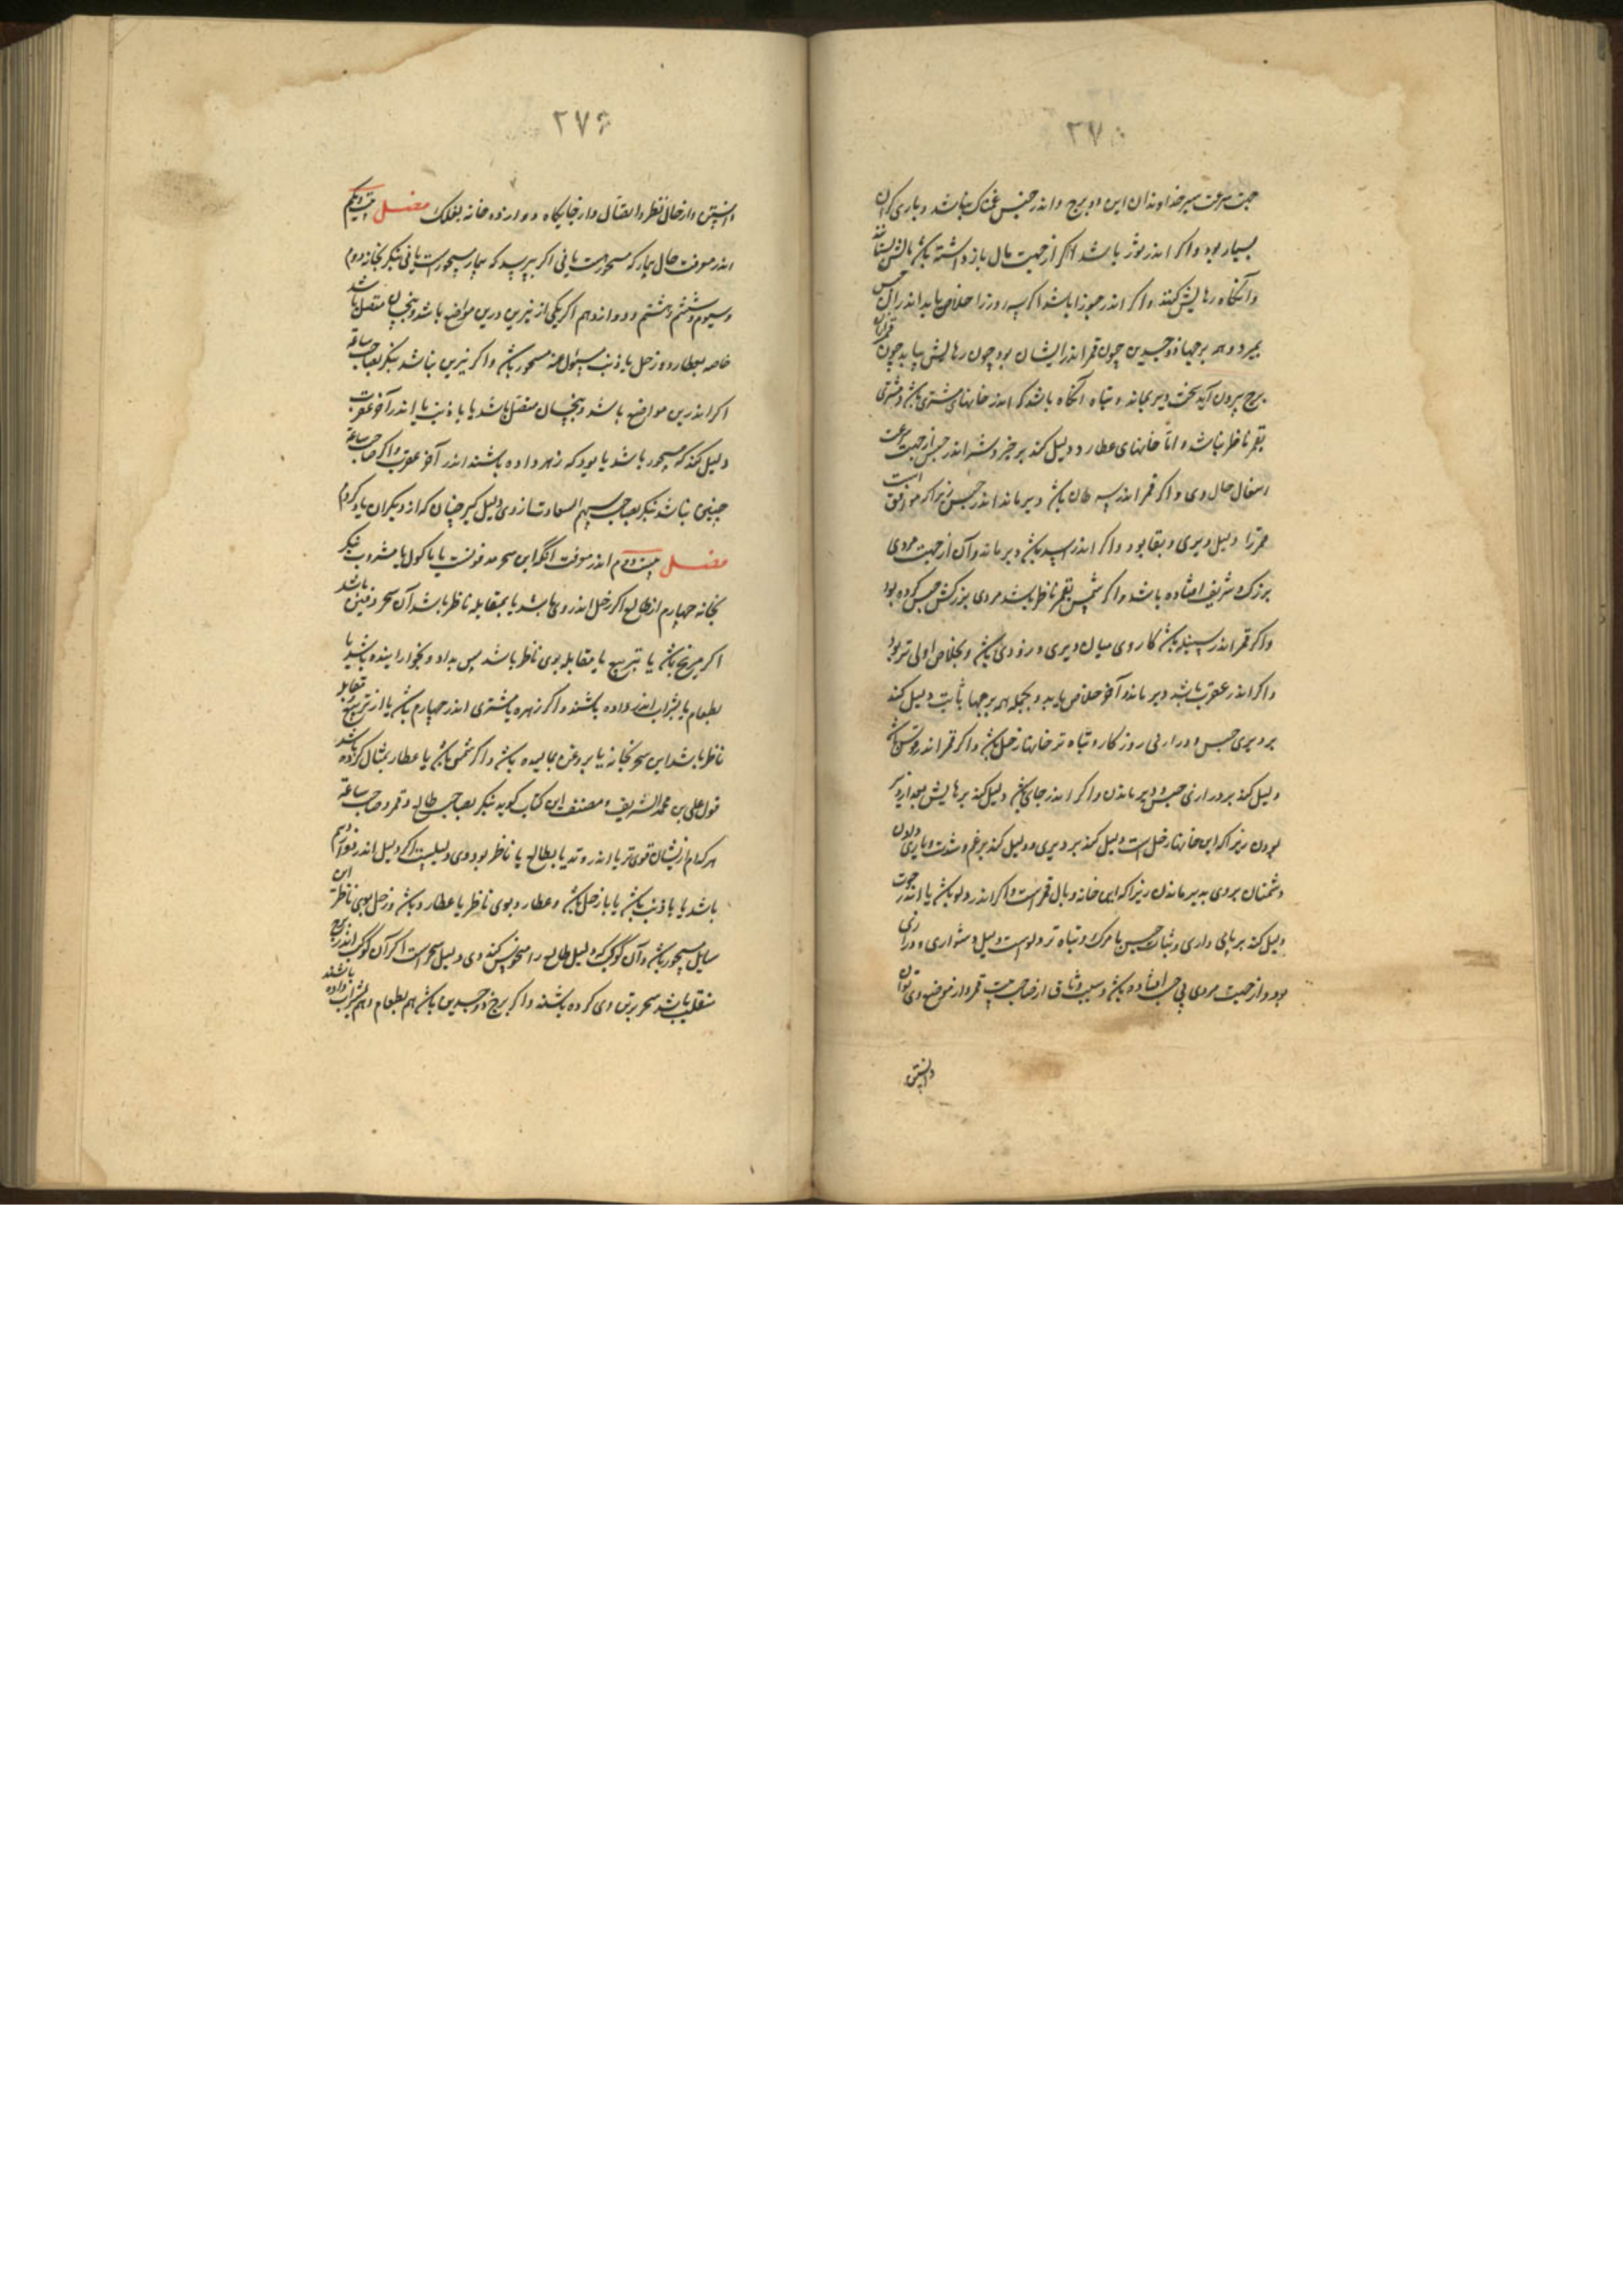 ۲۷۵
جهت سرعت سیر خداوندان این دو برج و اندر حبس غمناک نباشد و یاری گران
بسیار بود و اگر اندر ثور باشد اگر از جهت مال باز داشته باشد مالش بستانند
و آنگاه رهایش کنند و اگر اندر جوزا باشد اگر سه روز را خلاص یابد اندران حبس
بمیرد و همه برجهاء ذو جسدین چون قمر اندر ایشان بود چون رهایش یابد چون قمر از ان
برج بیرون آید سخت دیر بماند و تباه آنگاه باشد که اندر خانهای مشتری باشد و مشتری
بقمر ناظر نباشد و اما خانهای عطارد دلیل کند بر خیر و شر اندر حبس از جهت سرعت
حال وی و اگر قمر اندر سرطان باشد دیر ماند اندر حبس زیرا که موافق است
قمر را دلیل دیری و بقا بود و اگر اندر اسد باشد دیر ماند و آن از جهت مردی
بزرگ و شریف افتاده باشد و اگر شمس بقمر ناظر باشد مردی بزرگش حبس کرده بود
و اگر قمر اندر سنبله باشد کار وی میان دیری و زودی باشد و بخلاص اولی تر بود
و اگر اندر عقرب باشد دیر ماند و آخر خلاص یابد و بجمله همه برجها ثابت دلیل کند
بر دیری حبس و درازی روزگار و تباه تر خانها زحل باشد و اگر قمر اندر قوس باشد
دلیل کند بر درازی حبس و دیر ماندن و اگر اندر جدی باشد دلیل کند بر رهایش بعد از دیر
بودن زیرا که این خانها زحل است دلیل کند بر دیری و دلیل کند بر غم و شدت و
دشمنان بر وی بدیر ماندن زیرا که این خانه وبال قمر است و اگر اندر دلو باشد یا اندر حوت
دلیل کند بر پای داری و ثبات حبس یا مرگ و تباه تر دلو است دلیل دشواری و درازی
بود و از جهت مردی بی حسب افتاده باشد و سبب شناختن از صاحب بیت قمر و از موضع وی توان
دانستن و
۲۷۶
دانستن و از حال نظر و اتصال و از جایگاه دوازده خانه بفلک فصل بیست و یکم
اندر معرفت حال بیمار که مسحور هست یا نی اگر بپرسد که بیمار مسحور است یا نی بنگر بخانه دوم
و سیوم و ششم و هشتم و دوازدهم اگر یکی از نیرین درین مواضع باشد و بنحسان متصل باشد
خاصه بعطارد و زحل یا ذنب مسئول عنه مسحور باشد و اگر نیرین نباشد بنگر بصاحب ساعة
اگر اندرین مواضع باشد و بنحسان متصل باشد یا با ذنب یا اندر آخر عقرب
دلیل کند که مسحور باشد یا بود که زهر داده باشند اندر آخر عقرب و اگر صاحب ساعة
چنین نباشد بنگر بصاحب سهم السعادت از وی دلیل گیر چنان که از دیگران یاد کردم
فصل بیست و دوم اندر معرفت آنکه این سحر مدفونست یا ماکول یا مشروب بنگر
بخانه چهارم از طالع اگر زحل اندر وی باشد یا بمقابله ناظر باشد آن سحر دفین باشد
اگر مریخ باشد یا بتربیع یا مقابله بوی ناظر باشد پس بداد و بخورانیده باشند یا
بطعام یا بشراب اندر داده باشند و اگر زهره یا مشتری اندر چهارم باشد یا از تربیع و مقابله
ناظر باشد این سحر بخانه یا بر وغن بمالیده باشد و اگر شمس باشد یا عطارد بمثال کرده باشد
قول علی بن محمد الشریف و مصنف این کتاب گوید بنگر بصاحب طالع و قمر و صاحب ساعة
هر کدام ازیشان قوی تر یا اندر وتد یا بطالع یا ناظر بود وی دلیلست اگر دلیل اندر دوازدهم
باشد یا با ذنب باشد یا با زحل باشد و عطارد بوی ناظر یا عطارد باشد و زحل بوی ناظر این
سایل مسحور باشد و آن کوکب که دلیل طالع را منحوس کند وی دلیل سحر است اگر آن کوکب اندر برج
منقلب باشد سحر بر تن وی کرده باشند و اگر برج ذو جسدین باشد هم بطعام و هم بشراب داده باشند